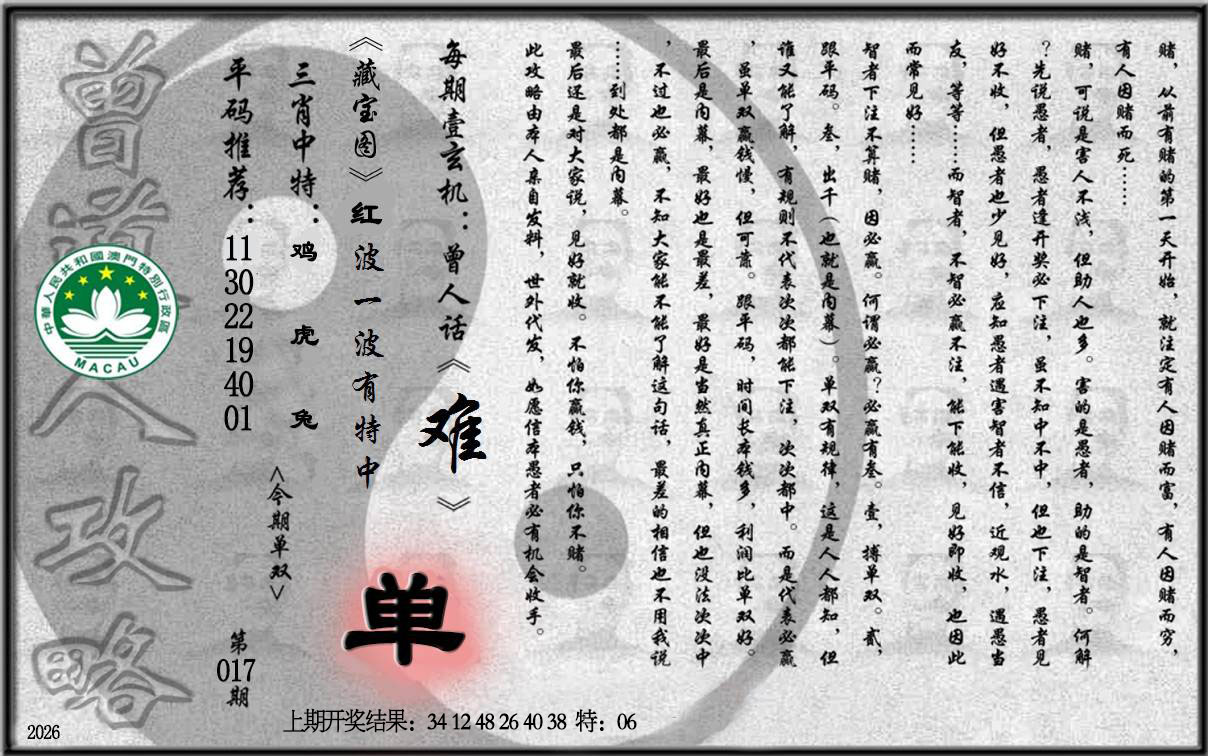 赌，从前有赌的第一天开始，就注定有人因赌而富，有人因赌而穷，
有人因赌而死……
赌，可说是害人不浅，但助人也多。害的是愚者，助的是智者。何解
？先说愚者，愚者逢开奖必下注，虽不知中不中，但也下注，愚者见
好不收，但愚者也少见好，应知愚者遇害智者不信，近观水，遇愚当
友，等等……而智者，不智必赢不注，能下能收，见好即收，也因此
而常见好……
智者下注不算赌，因必赢。何谓必赢？必赢有叁。壹，搏单双。贰，
跟平码。叁，出千（也就是内幕）。单双有规律，这是人人都知，但
谁又能了解，有规则不代表次次都能下注，次次都中。而是代表必赢
，虽单双赢钱慢，但可靠。跟平码，时间长本钱多，利润比单双好。
最后是内幕，最好也是最差，最好是当然真正内幕，但也没法次次中
，不过也必赢，不知大家能不能了解这句话，最差的相信也不用我说
……到处都是内幕。
最后还是对大家说，见好就收。不怕你赢钱，只怕你不赌。
此攻略由本人亲自发料，世外代发，如愿信本愚者必有机会收手。
每期壹玄机：曾人话《难》
《藏宝图》红波一波有特中
三肖中特：鸡 虎 兔
平码推荐：11 30 22 19 40 01
<今期单双>
单
第017期
曾道人攻略
中華人民共和國澳門特別行政區
MACAU
上期开奖结果：34 12 48 26 40 38 特：06
2026